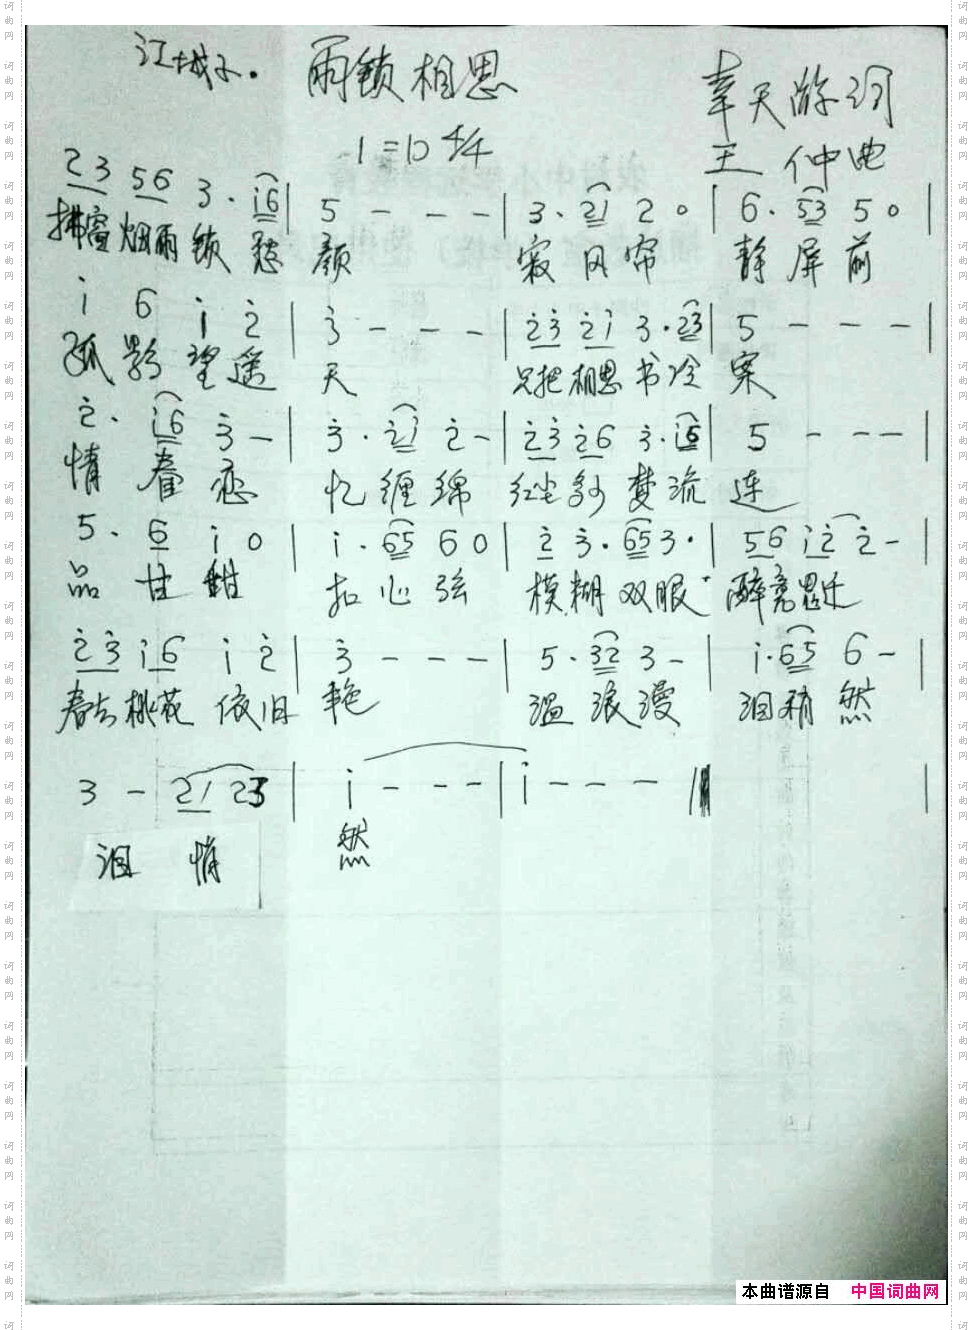 江城子. 雨锁相思
幸天游词
1=D 4/4
王 仲曲
2 3 5 6 3 · i 6 | 5 - - - | 3 · 2 1 2 0 | 6 · 5 3 5 0 |
拂窗烟雨锁愁 颜 寂风帘 静屏前
i 6 i 2 | 3 - - - | 2 3 2 1 3 · 2 3 | 5 - - - |
孤影望遥 天 只把相思书冷 案
2 · i 6 3 - | 3 · 2 1 2 - | 2 3 2 6 3 · i 6 | 5 - - - |
情眷恋 忆缠绵 红尘多少梦流 连
5 · 6 i 0 | i · 6 5 6 0 | 2 3 · 6 5 3 · | 5 6 i 2 2 - |
品甘甜 扣心弦 模糊双眼 醉意
2 3 i 6 i 2 | 3 - - - | 5 · 3 2 3 - | i · 6 5 6 - |
春去桃花依旧 艳 温浪漫 泪悄然
3 - 2 1 2 3 | i - - - | i - - - ‖
泪 悄 然
本曲谱源自 中国词曲网